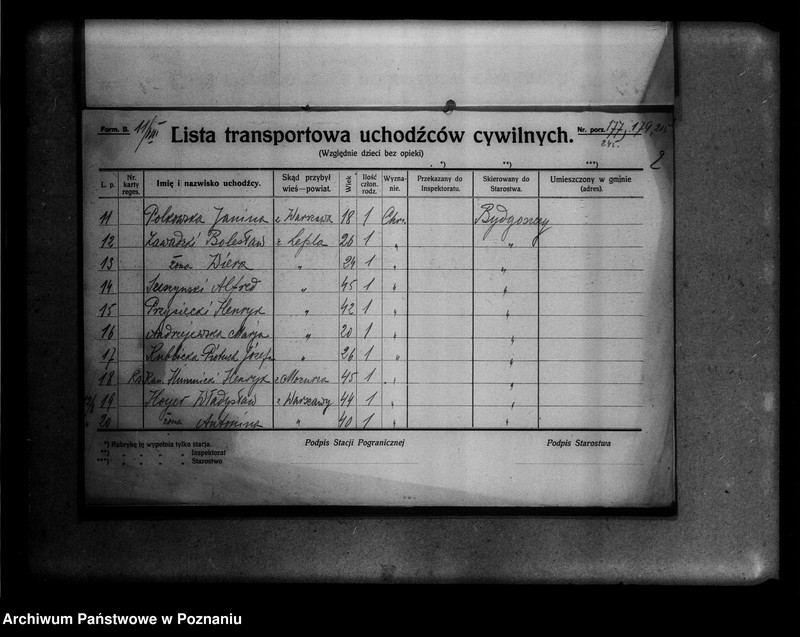 Form. B. 11/VIII Lista transportowa uchodźców cywilnych. Nr. porz. 177, 179, 215
(Względnie dzieci bez opieki) 245. 2
*) **) ***)
L. p. Nr. karty reges. Imię i nazwisko uchodźcy. Skąd przybył wieś—powiat. Wiek Ilość człon. rodz. Wyzna- nie. Przekazany do Inspektoratu. Skierowany do Starostwa. Umieszczony w gminie (adres).
11 Janina z Warszawa 18 1 Chrz. Bydgoszcz
12 Zawadzki Bolesław z 26 1 " "
13 żona Wiera " 24 1 " "
14 Alfred " 45 1 " "
15 Henryk " 42 1 " "
16 Andrzejewska Marja " 20 1 " "
17 Józefa " 26 1 " "
18 Henryk z 45 1 " "
19 Hoyer Władysław z Warszawy 44 1 " "
20 żona Antonina " 40 1 " "
*) Rubrykę tę wypełnia tylko stacja. Podpis Stacji Pogranicznej Podpis Starostwa
**) " " " " Inspektorat
***) " " " " Starostwo
Archiwum Państwowe w Poznaniu